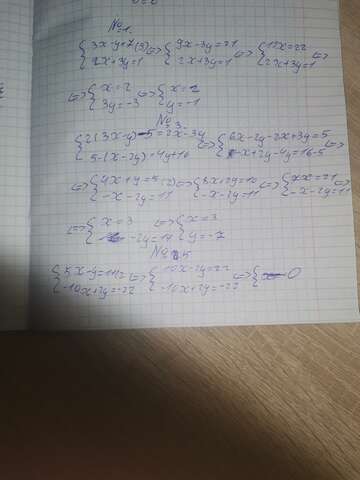 №1.
{3x-y=7 (3) {2x+3y=1 <=> {9x-3y=21 {2x+3y=1 <=> {11x=22 {2x+3y=1 <=>
<=> {x=2 {3y=-3 <=> {x=2 {y=-1
№3.
{2(3x-y)-5=2x-3y {5-(x-2y)=4y+16 <=> {6x-2y-2x+3y=5 {-x+2y-4y=16-5 <=>
<=> {4x+y=5 (2) {-x-2y=11 <=> {8x+2y=10 {-x-2y=11 <=> {7x=21 {-x-2y=11
<=> {x=3 {-2y=14 <=> {x=3 {y=-7
№5
{5x-y=11 (2) {-10x+2y=-22 <=> {10x-2y=22 {-10x+2y=-22 <=> { 0